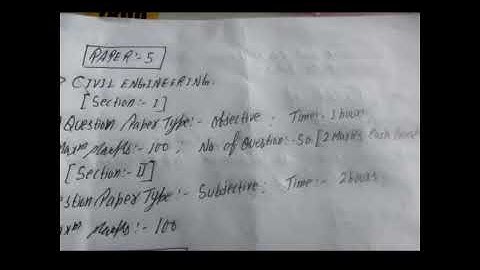 PAPER:- 5
CIVIL ENGINEERING.
[Section:- I]
Question Paper Type:- Objective; Time:- 1 hours
Marks:- 100; No. of Question:- 50 [2 Marks Each
[Section:- II]
Paper Type:- Subjective; Time:- 2 hours,
Marks:- 100